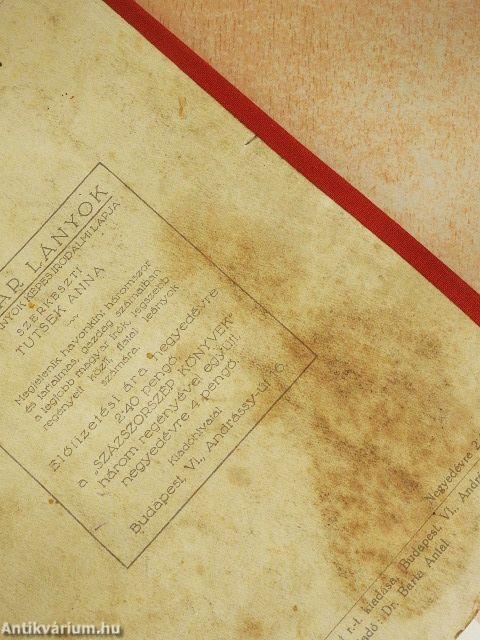 AR LÁNYOK
NYOK KÉPES IRODALMI LAPJA
SZERKESZTI
TUTSEK ANNA
Megjelenik havonkint háromszor
és tartalmas, gazdag számaiban
a legjobb magyar írók legszebb
regényeit közli fiatal leányok
számára.
Előfizetési ára negyedévre
2·40 pengő
a „SZÁZSZORSZÉP KÖNYVEK"
három regényével együtt
negyedévre 4 pengő
Kiadóhivatal
Budapest, VI., Andrássy-út 16.
Negyedévre 2
r.-t. kiadása, Budapest, VI. Andrá
adó: Dr. Barta Antal
Antikvárium.hu